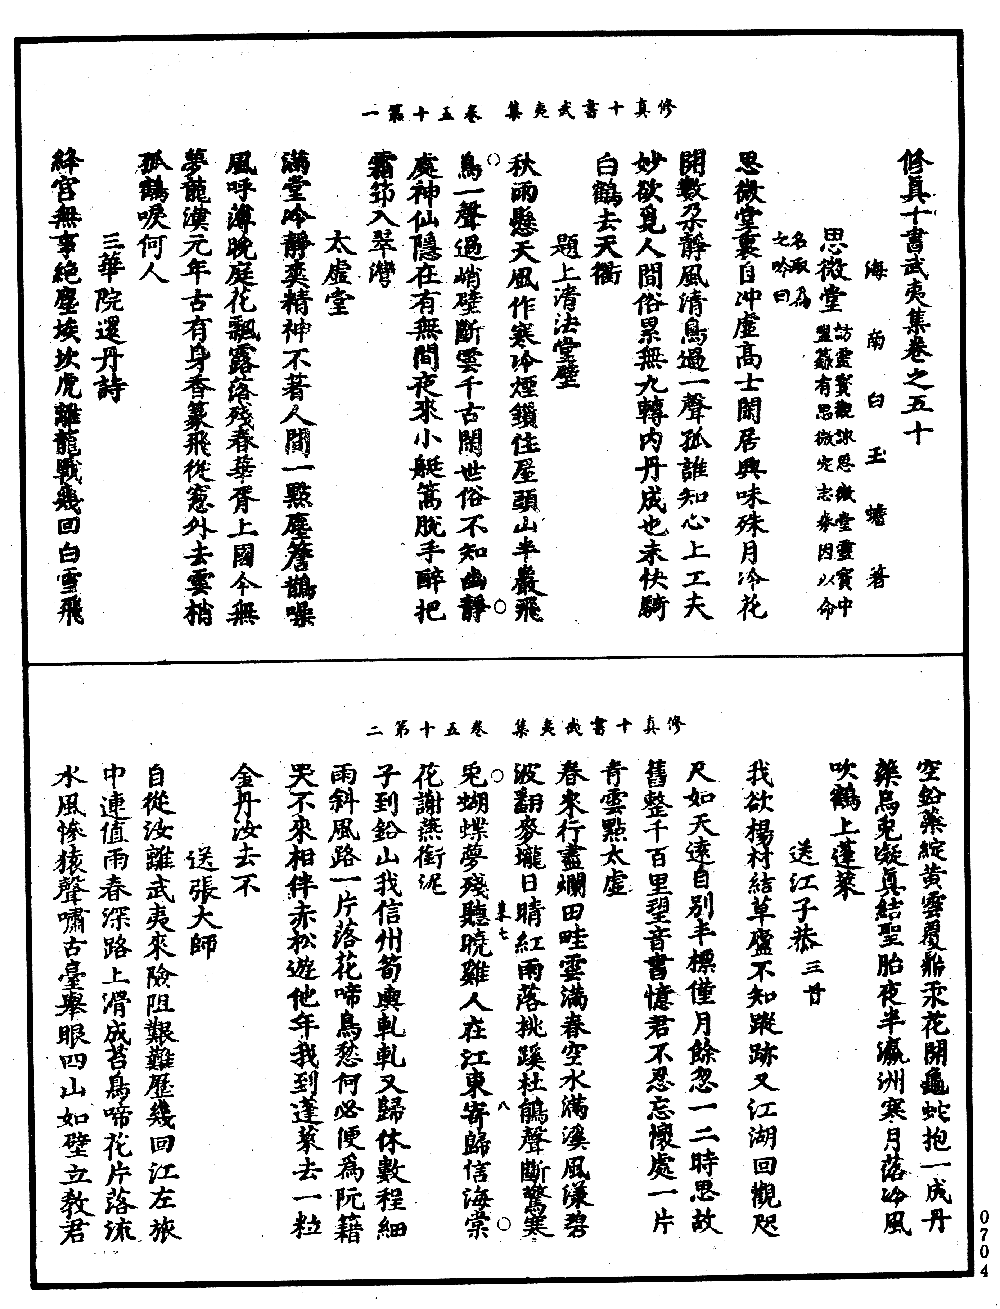 修真十書武夷集 卷五十 第一
修真十書武夷集卷之五十
海南白玉蟾著
思微堂 訪靈寶觀詠思微堂靈寶中
盟籙有思微定志券因以命
名取為
之吟曰
思微堂裏自冲虛高士閑居興味殊月冷花
開數朶靜風清鳥過一聲孤誰知心上工夫
妙欲覓人間俗累無九轉內丹成也未快騎
白鶴去天衢
題上清法堂壁
秋雨懸天風作寒冷煙鎖住屋頭山半巖飛
鳥一聲過峭壁斷雲千古閑世俗不知幽靜
處神仙隱在有無間夜來小艇篙脫手醉把
霜筇入翠灣
太虛堂
滿堂冷靜爽精神不著人間一點塵簷鵲噪
風呼薄晚庭花飄露落殘春華胥上國今無
夢龍漢元年古有身香篆飛從窓外去雲梢
孤鶴唳何人
三華院還丹詩
絳宮無事絶塵埃坎虎離龍戰幾回白雪飛
修真十書武夷集 卷五十 第二
空鉛藥綻黃雲覆鼎汞花開龜蛇抱一成丹
藥烏兔凝真結聖胎夜半瀛洲寒月落冷風
吹鶴上蓬萊
送江子恭三首
我欲楊村結草廬不知蹤跡又江湖回觀咫
尺如天遠自別半標僅月餘忽一二時思故
舊整千百里望音書憶君不忍忘懷處一片
青雲點太虛
春來行盡爛田畦雲滿春空水滿溪風漾碧
波翻麥壠日晴紅雨落桃蹊杜鵑聲斷驚寒
兎蝴蝶夢殘聽曉雞人在江東寄歸信海棠
花謝燕銜泥
子到鉛山我信州筍輿軋軋又歸休數程細
雨斜風路一片落花啼鳥愁何必便為阮籍
哭不來相伴赤松遊他年我到蓬萊去一粒
金丹汝去不
送張大師
自從汝離武夷來險阻艱難歷幾回江左旅
中連值雨春深路上滑成苔鳥啼花片落流
水風慘猿聲嘯古臺舉眼四山如壁立教君
集七
八
0704